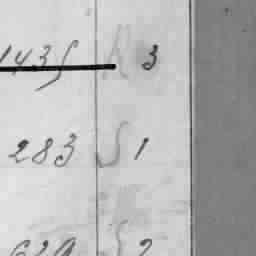 1435 R 3
283 S 1
629 S 2